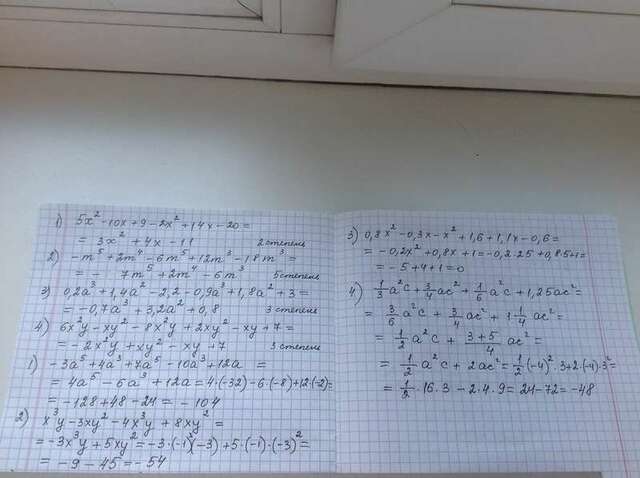 1) 5x² - 10x + 9 - 2x² + 14x - 20 =
= 3x² + 4x - 11 2 степень
2) - m⁵ + 2m⁴ - 6m⁵ + 12m³ - 18m³ =
= - 7m⁵ + 2m⁴ - 6m³ 5 степень
3) 0,2a³ + 1,4a² - 2,2 - 0,9a³ + 1,8a² + 3 =
= -0,7a³ + 3,2a² + 0,8 3 степень
4) 6x²y - xy² - 8x²y + 2xy² - xy + 7 =
= -2x²y + xy² - xy + 7 3 степень
1) -3a⁵ + 4a³ + 7a⁵ - 10a³ + 12a =
= 4a⁵ - 6a³ + 12a = 4·(-32) - 6·(-8) + 12·(-2) =
= -128 + 48 - 24 = -104
2) x³y - 3xy² - 4x³y + 8xy² =
= -3x³y + 5xy² = -3·(-1)³·(-3) + 5·(-1)·(-3)² =
= -9 - 45 = -54
3) 0,8x² - 0,3x - x² + 1,6 + 1,1x - 0,6 =
= -0,2x² + 0,8x + 1 = -0,2·25 + 0,8·5 + 1 =
= -5 + 4 + 1 = 0
4) 1/3 a²c + 3/4 ac² + 1/6 a²c + 1,25ac² =
= 3/6 a²c + 3/4 ac² + 1 1/4 ac² =
= 1/2 a²c + 3+5/4 ac² =
= 1/2 a²c + 2ac² = 1/2 (-4)²·3 + 2·(-4)·3² =
= 1/2·16·3 - 2·4·9 = 24 - 72 = -48